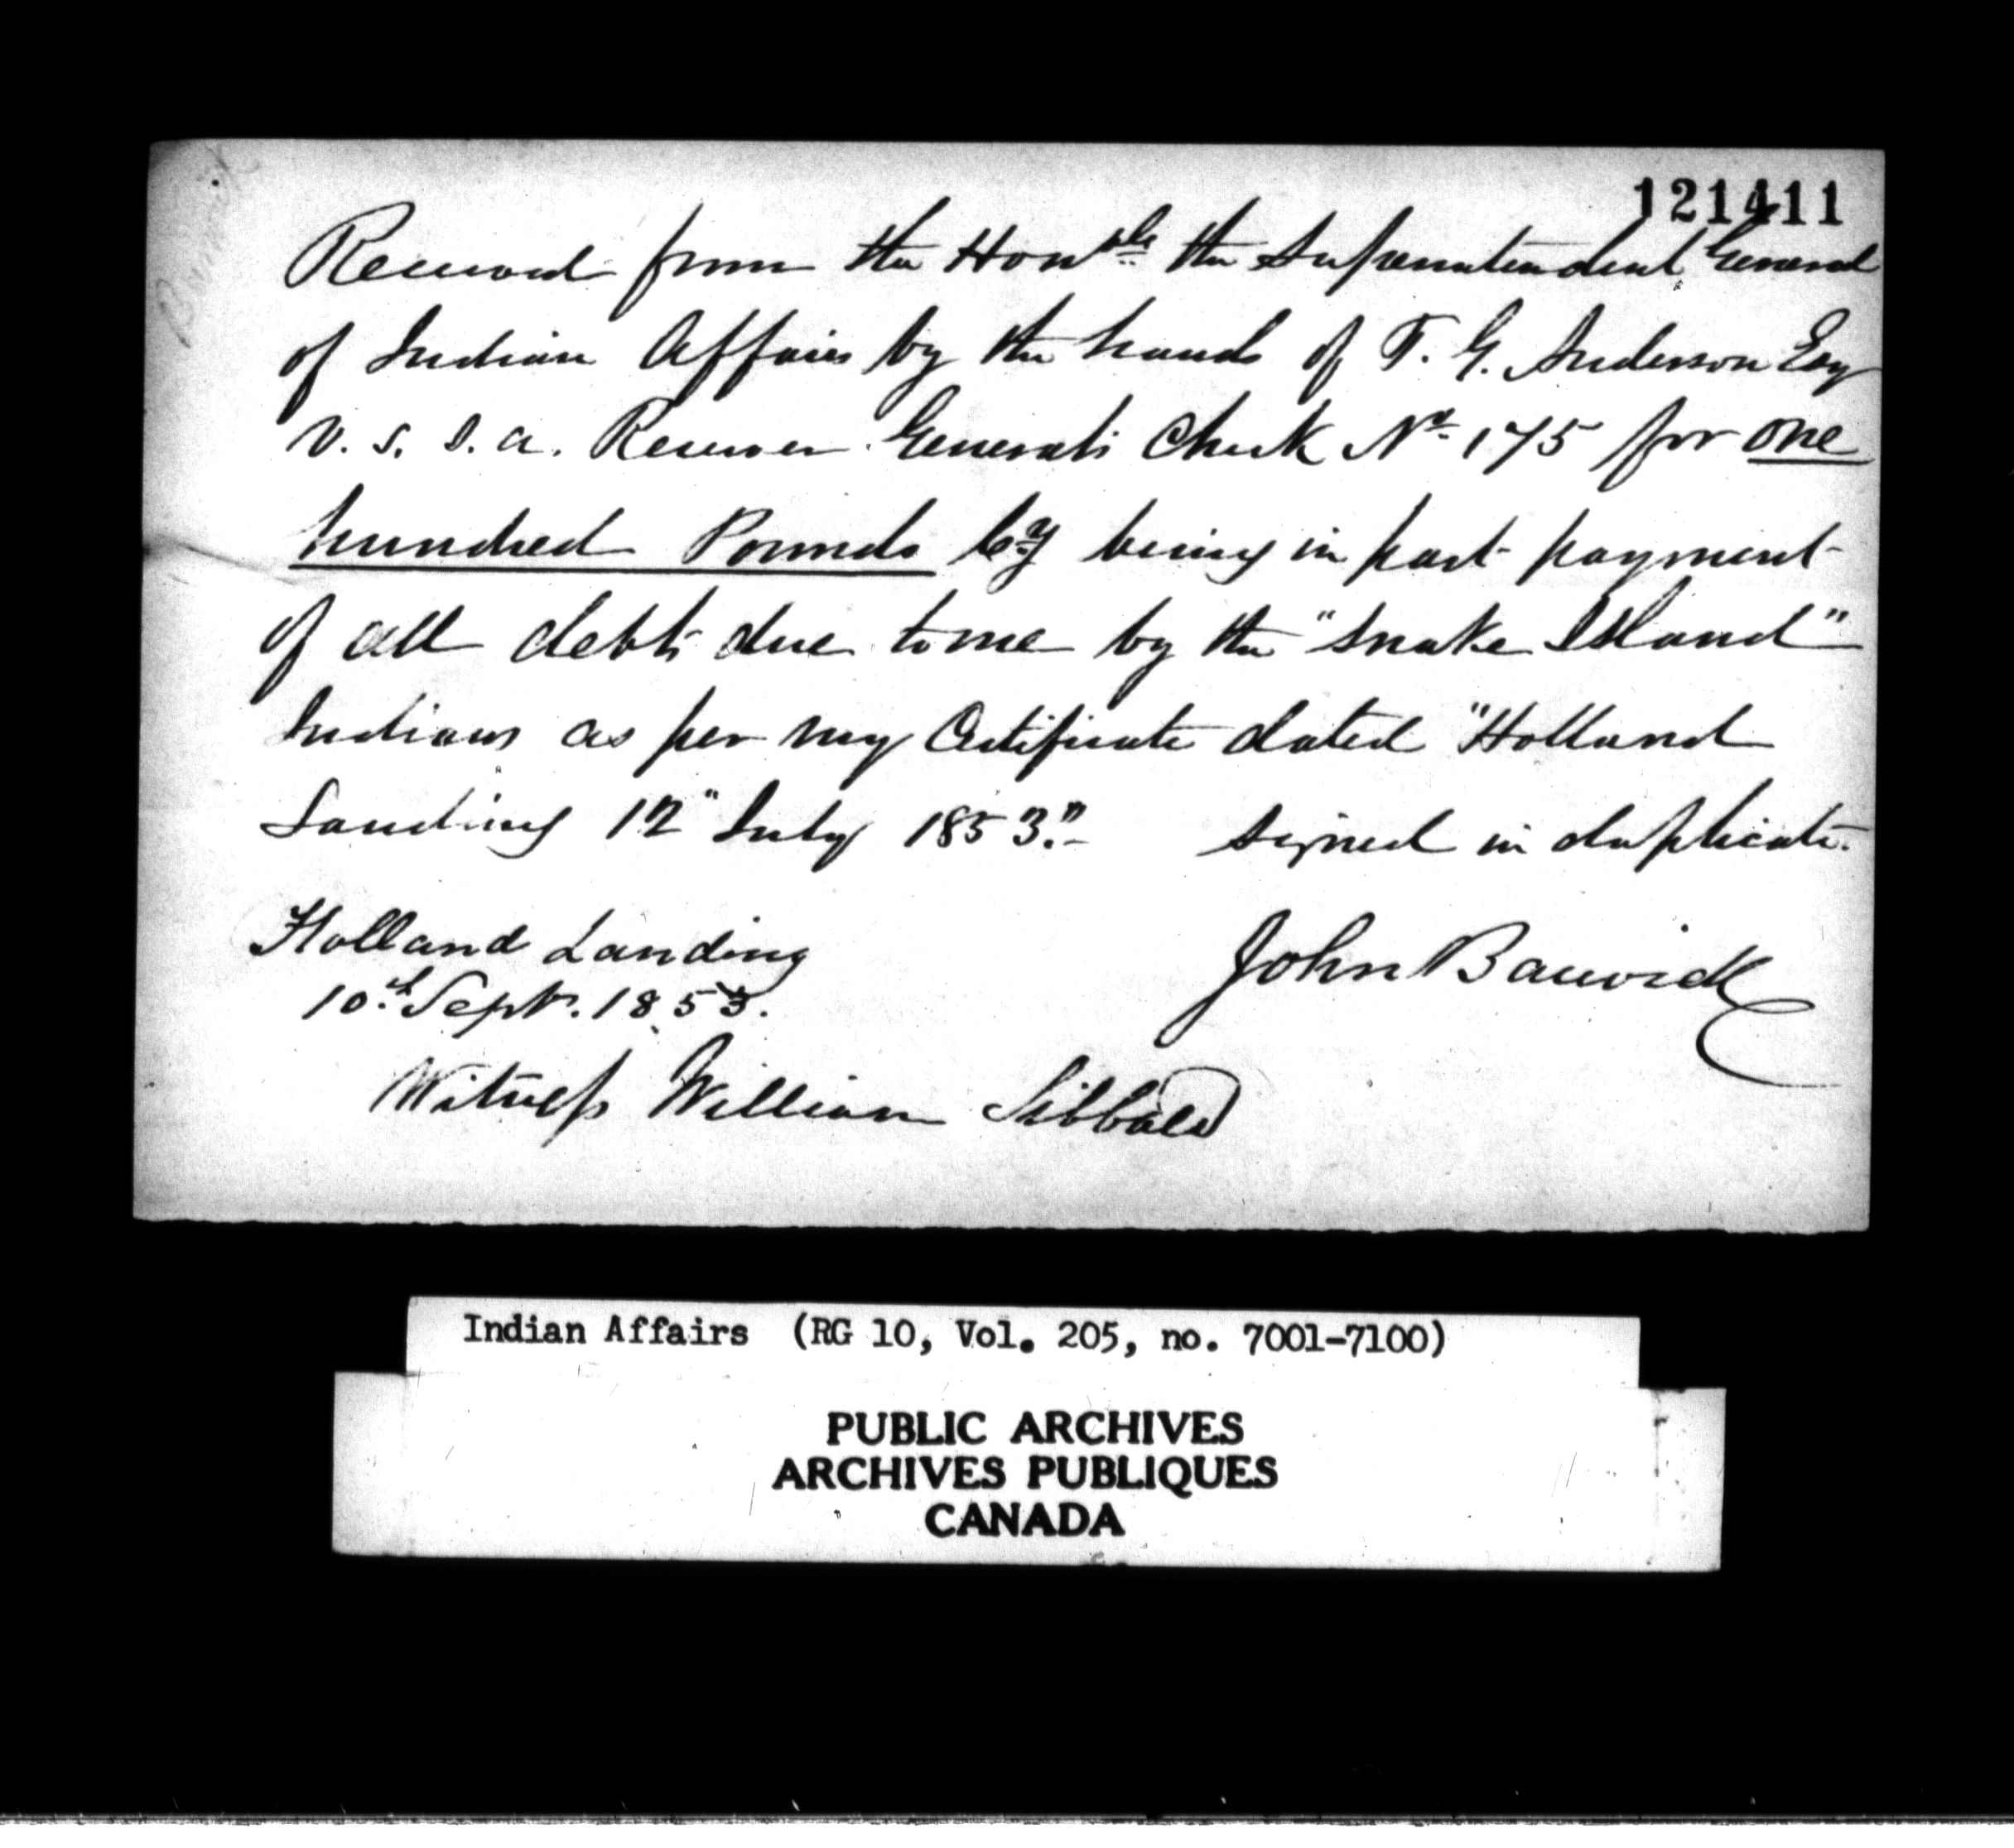 121411
Barwick
Received from the Honble the Superintendent General
of Indian Affairs by the hands of T. G. Anderson Esq
V. S. I. A. Receiver General's Check No 175 for one
hundred Pounds Cy being in part payment
of all debts due to me by the "Snake Island"
Indians as per my Certificate dated "Holland
Landing 12" July 1853".- Signed in duplicate.
Holland Landing
10th Sept. 1853.
John Barwick
Witness William Sibbald
Indian Affairs (RG 10, Vol. 205, no. 7001-7100)
PUBLIC ARCHIVES
ARCHIVES PUBLIQUES
CANADA